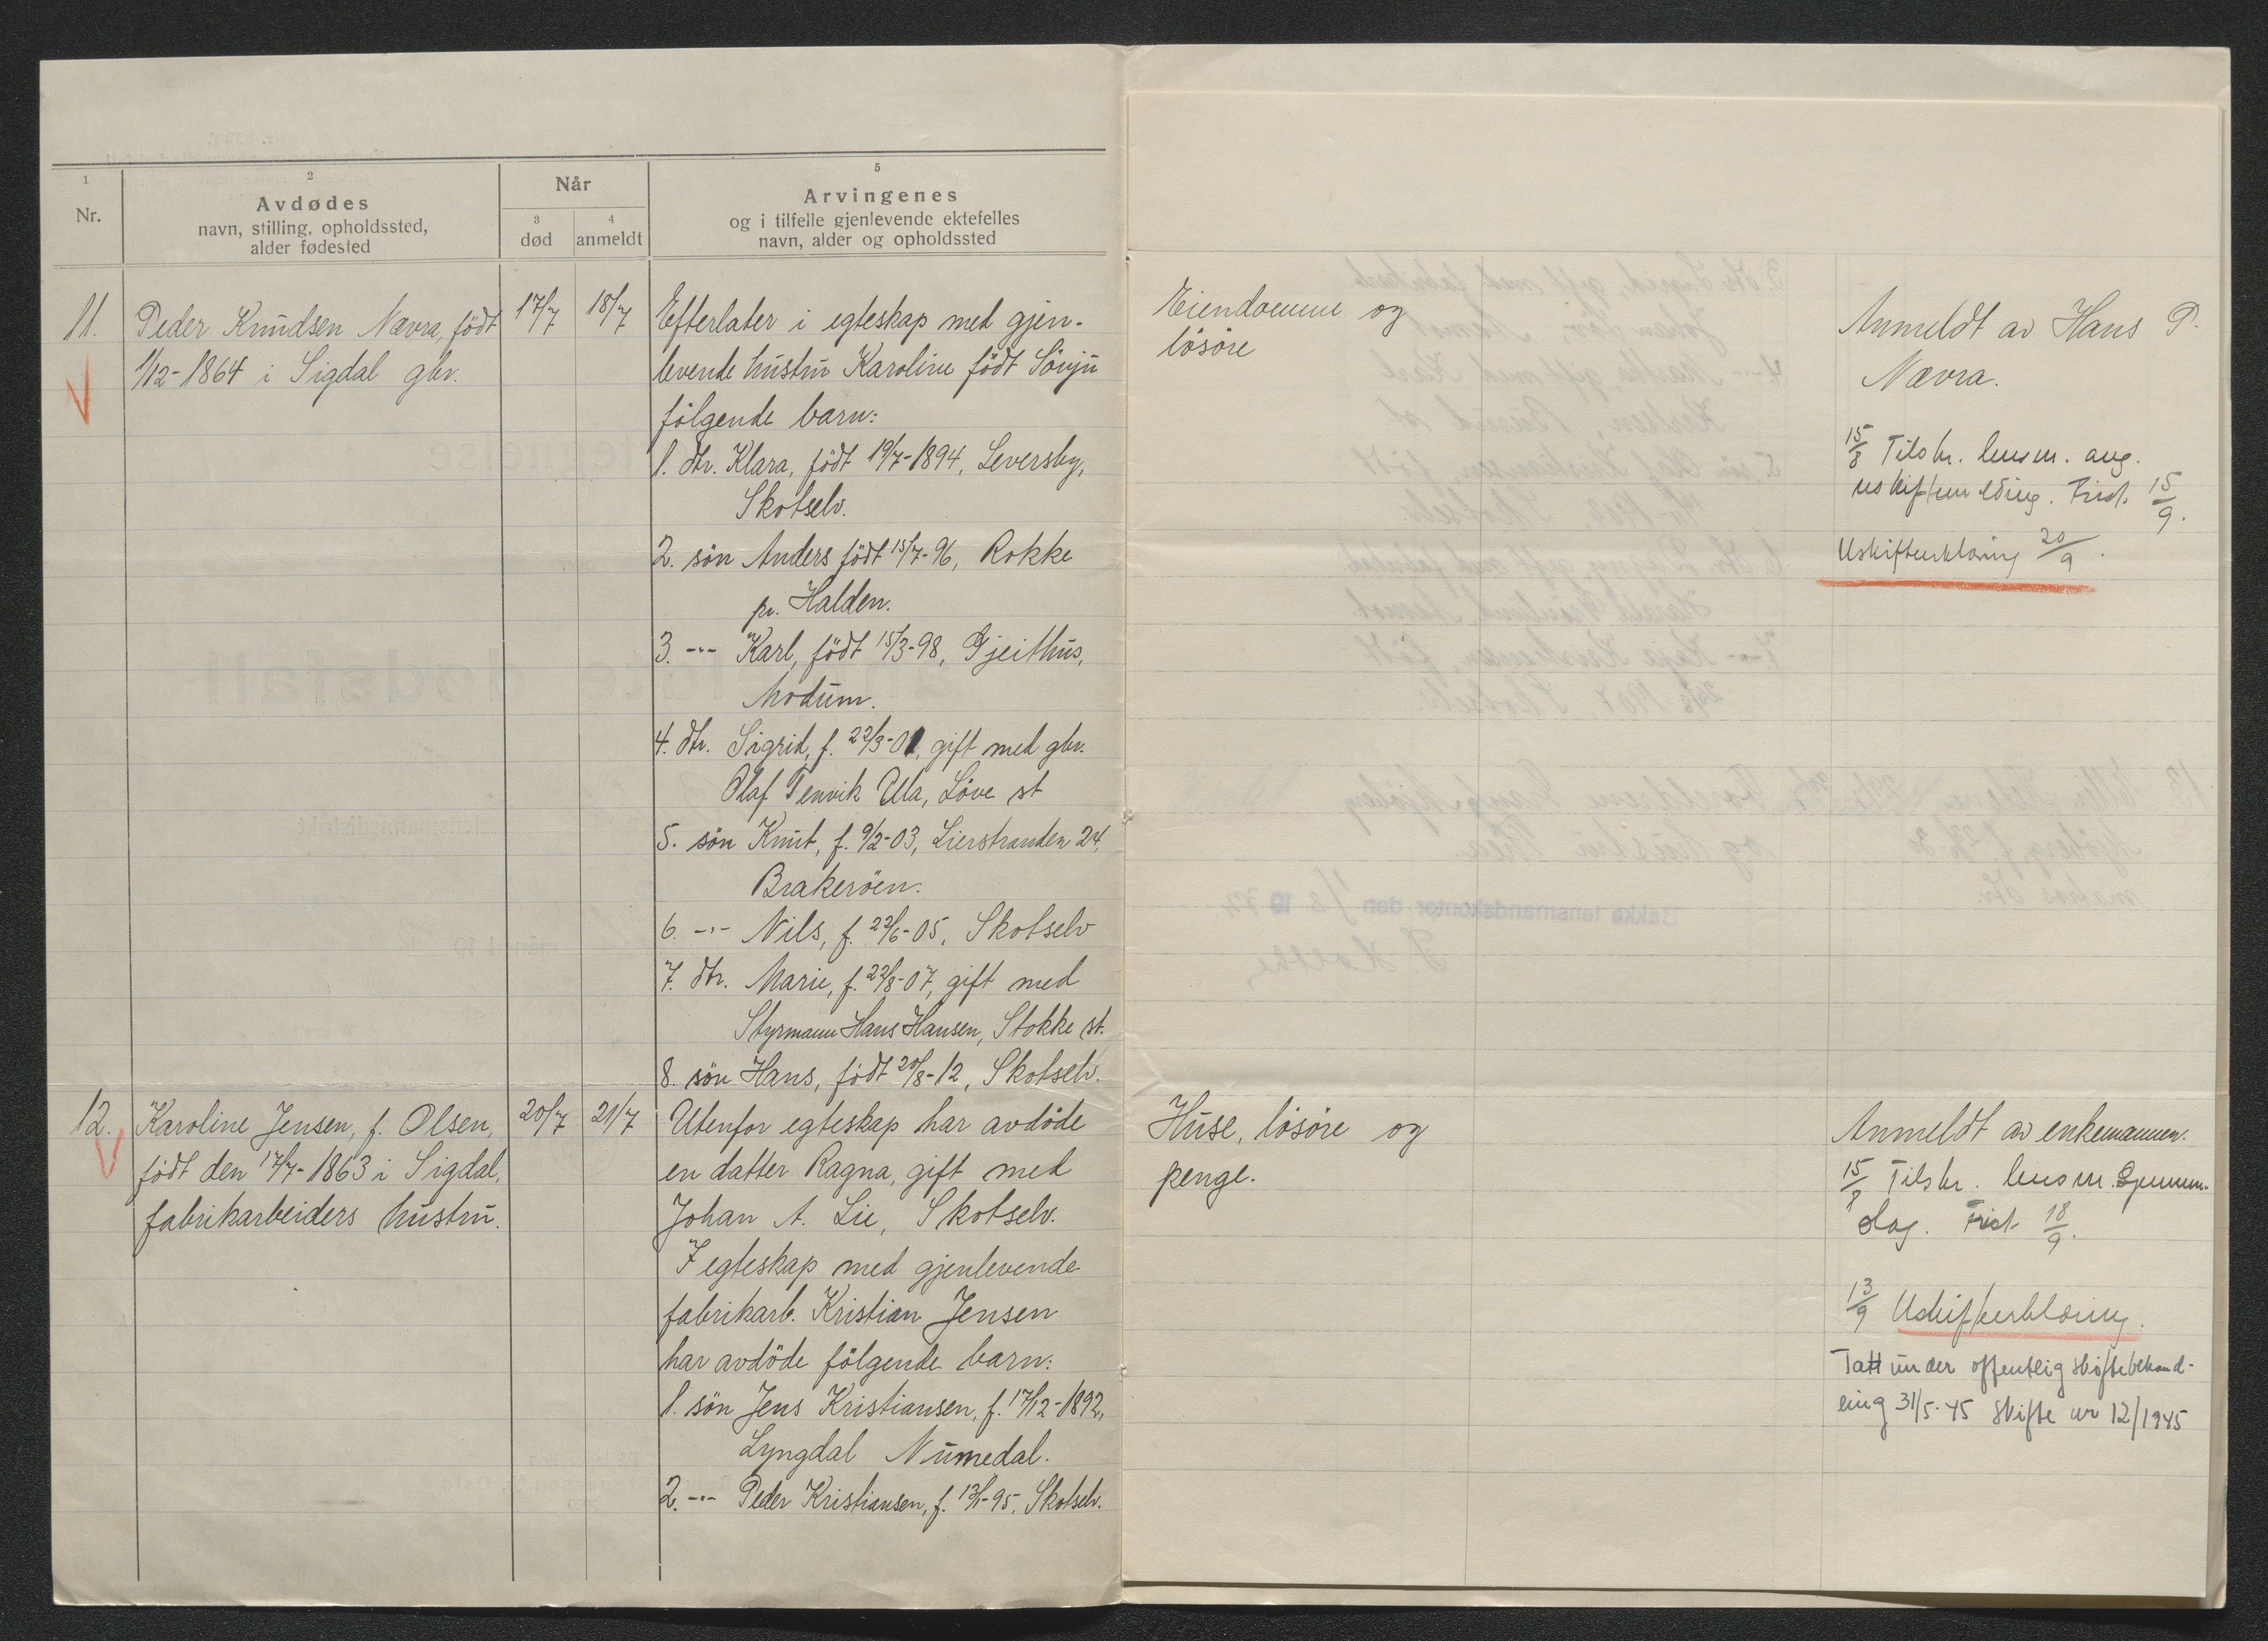 1
Nr.
2
Avdødes
navn, stilling, opholdssted,
alder fødested
Når
3
død
4
anmeldt
5
Arvingenes
og i tilfelle gjenlevende ektefelles
navn, alder og opholdssted
11.
Peder Knudsen Nævra, född
1/12-1864 i Sigdal gbr.
17/7
18/7
Efterlater i egteskap med gjen-
levende hustru Karoline född
følgende barn:
1. dtr. Klara, född 19/7-1894, Leversby,
Skotselv.
2. søn Anders född 15/7-96, Rokke
pr. Halden.
3. -"- Karl, född 15/3-98, Gjeithus,
Modum.
4. dtr. Sigrid, f. 22/3-01, gift med gbr.
Olaf Tenvik Ula, Løve st
5. søn Knut, f. 9/2-03, Lierstranden 24,
Brakerøen.
6. -"- Nils, f. 22/6-05, Skotselv
7. dtr. Marie, f. 22/8-07, gift med
Styrmann Hans Hansen, Stokke st.
8. søn Hans, född 20/8-12, Skotselv.
Eiendomme og
løsøre
Anmeldt av Hans P.
Nævra.
15/8 Tilskr. lensm. ang.
Frist 15/9.
Uskifteerklæring 20/9.
12.
Karoline Jensen, f. Olsen,
født den 17/7-1863 i Sigdal,
fabrikarbeiders hustru.
20/7
21/7
Utenfor egteskap har avdøde
en datter Ragna, gift med
Johan A. Lie, Skotselv.
I egteskap med gjenlevende
fabrikarb. Kristian Jensen
har avdøde følgende barn:
1. søn Jens Kristiansen, f. 17/12-1892,
Lyngdal Numedal.
2. -"- Peder Kristiansen, f. 13/1-95, Skotselv.
Huse, løsøre og
penge.
Anmeldt av enkemannen.
15/8 Tilskr. lensm.
Frist 18/9.
13/9 Uskifteerklæring.
Tatt under offentlig skiftebehand-
ling 31/5-45 Skifte nr 12/1945